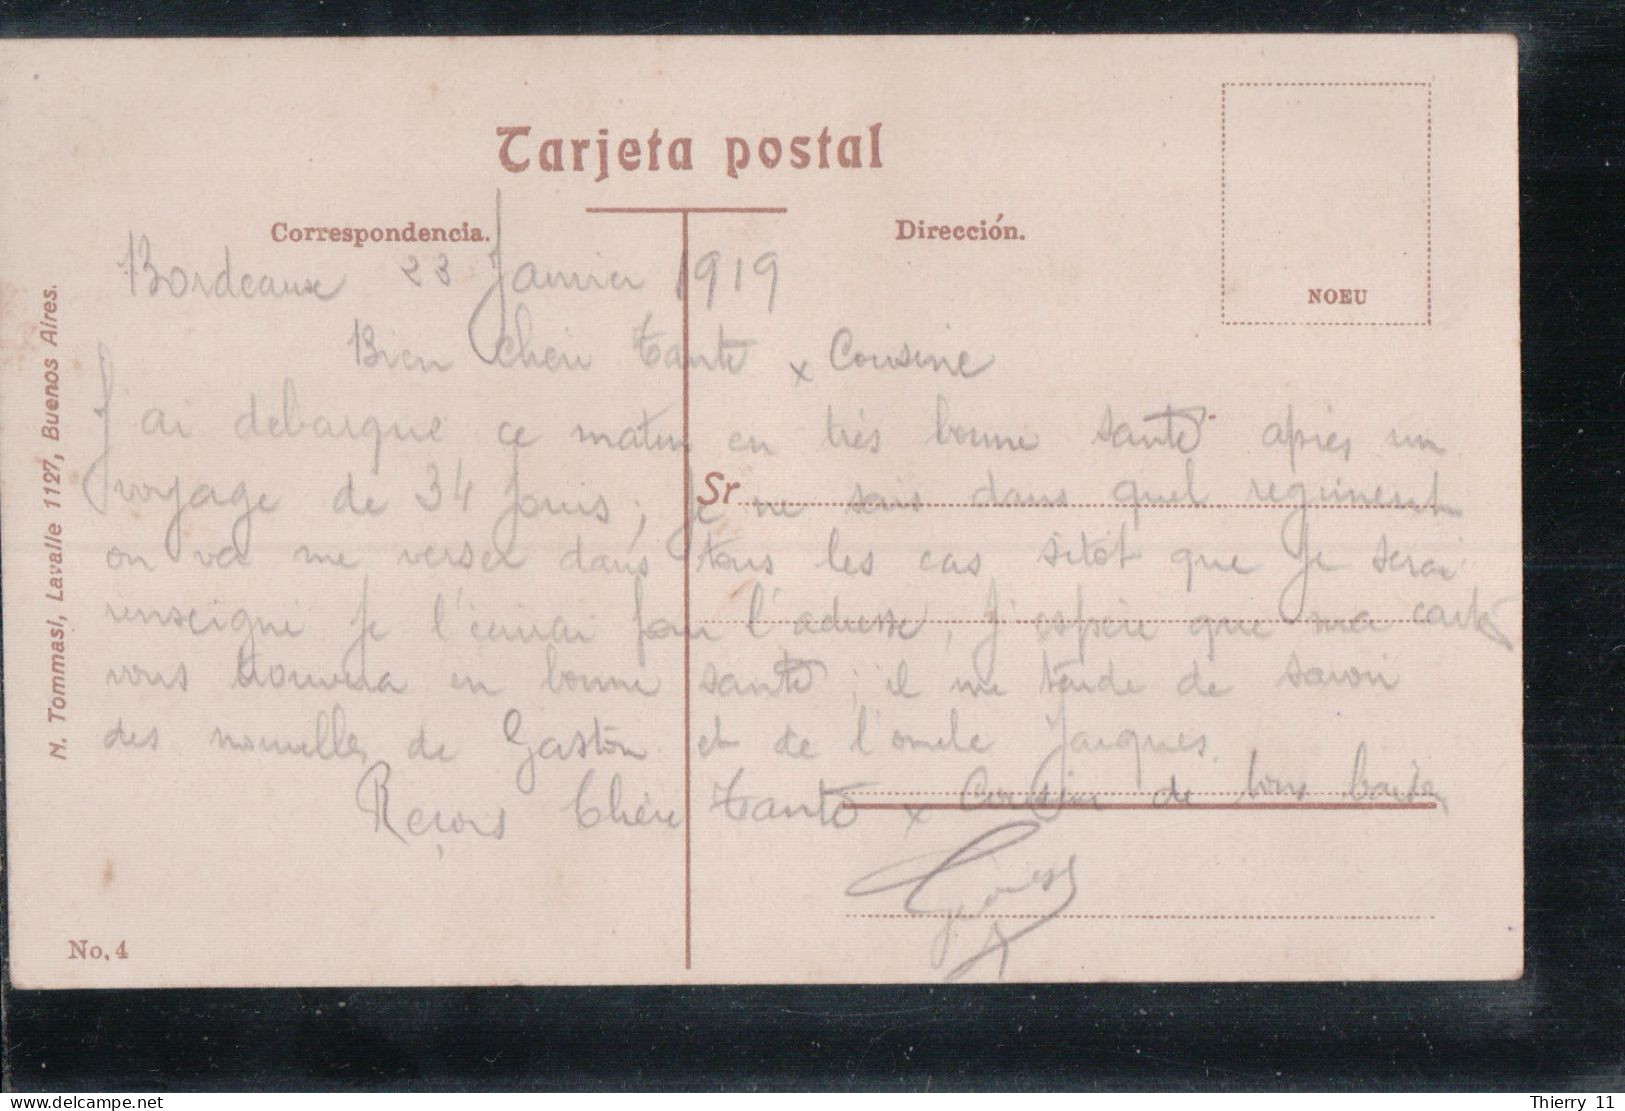 Tarjeta postal
Correspondencia.
Dirección.
NOEU
Bordeaux 23 Janvier 1919
Bien chère Tante x Cousine
J'ai debarqué ce matin en très bonne santé après un
voyage de 34 jours, je ne sais dans quel regiment
Sr
on va me verser dans tous les cas sitôt que je serai
renseigné je l'écrirai pour l'adresse, j'espère que ma carte
vous trouvera en bonne santé, il me tarde de savoir
des nouvelles de Gaston et de l'oncle Jacques.
Reçois Chère Tante x Cousine de bons baisers
N. Tommasi, Lavalle 1127, Buenos Aires.
No. 4
Thierry 11
www.delcampe.net